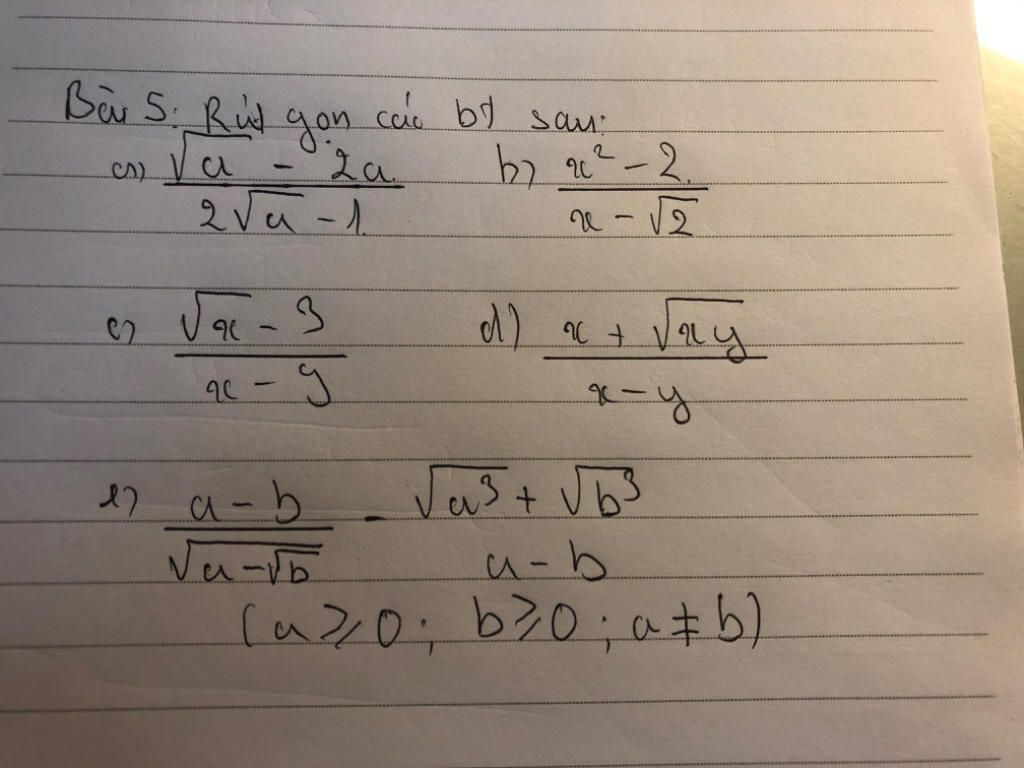 Bài 5: Rút gọn các bt sau:
a) (√a - 2a)/(2√a - 1) b) (x² - 2)/(x - √2)
c) (√x - 3)/(x - 9) d) (x + √xy)/(x - y)
e) (a - b)/√(a - √b) - (√a³ + √b³) / (a - b)
(a ≥ 0; b ≥ 0; a ≠ b)